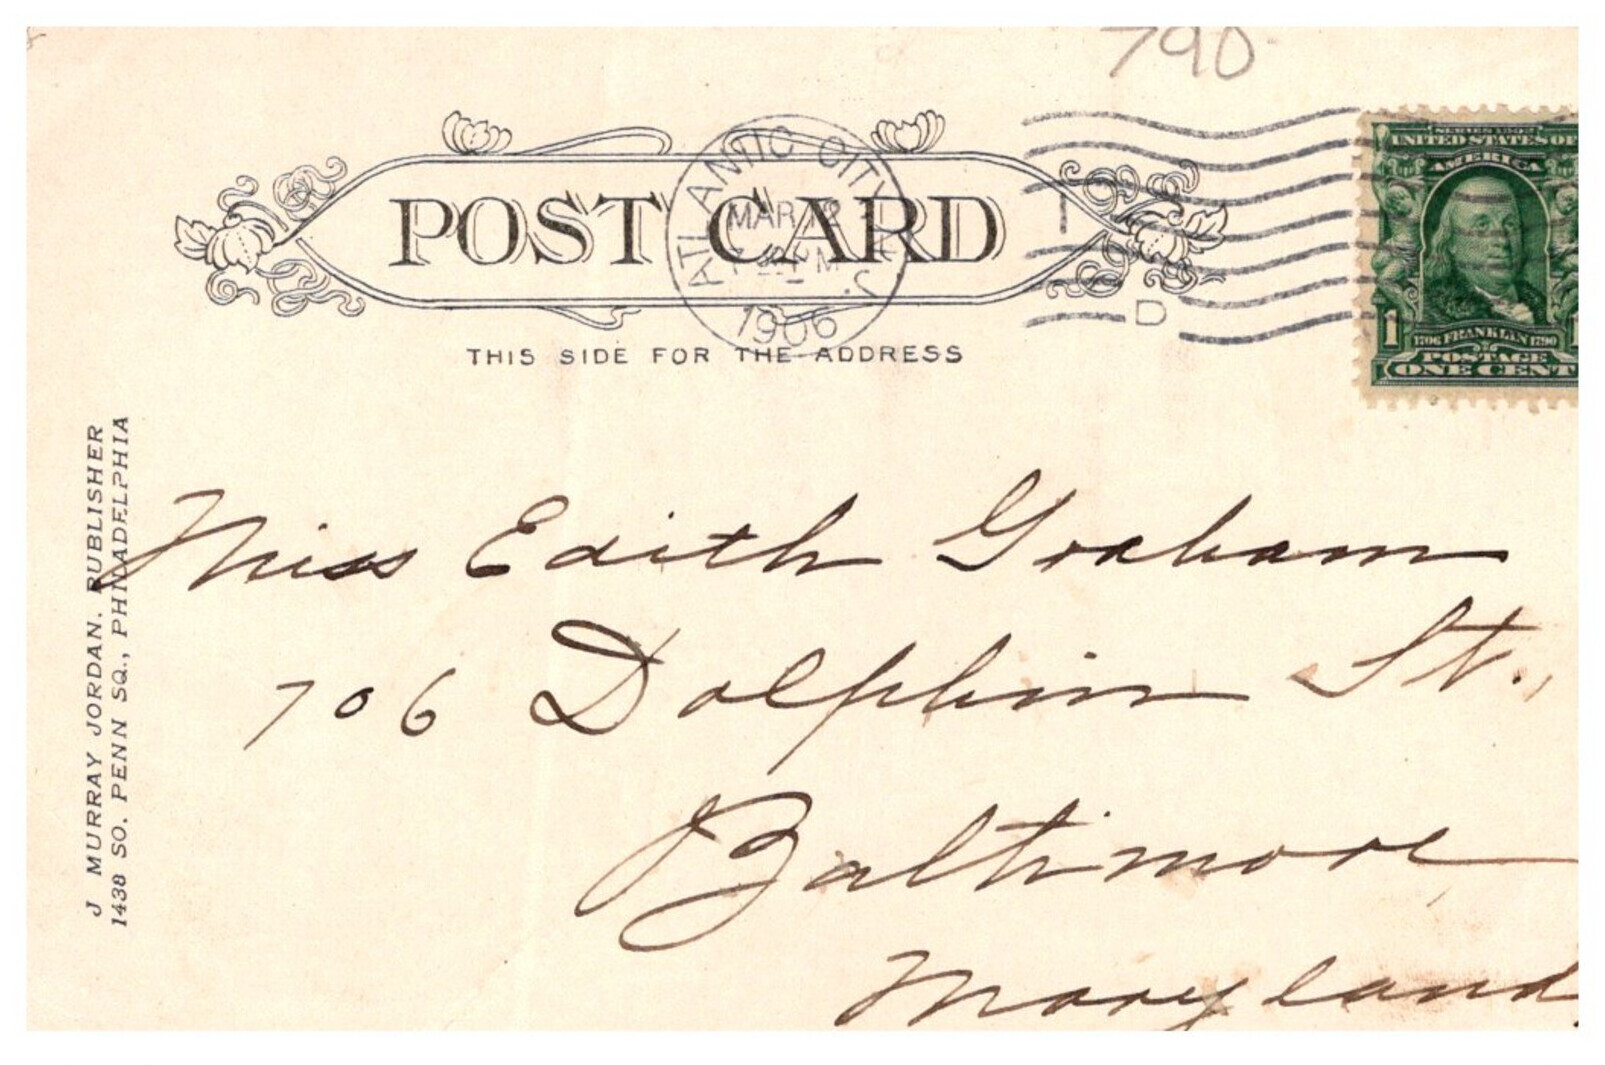 790
ATLANTIC CITY, N.J.
MAR
PM
1906
D
POST CARD
THIS SIDE FOR THE ADDRESS
SERIES 1902
UNITED STATES OF
AMERICA
1
1706 FRANKLIN 1790
POSTAGE
ONE CENT
J MURRAY JORDAN. PUBLISHER
1438 SO. PENN SQ., PHILADELPHIA
Miss Edith Graham
706 Dolphin St.,
Baltimore
Maryland